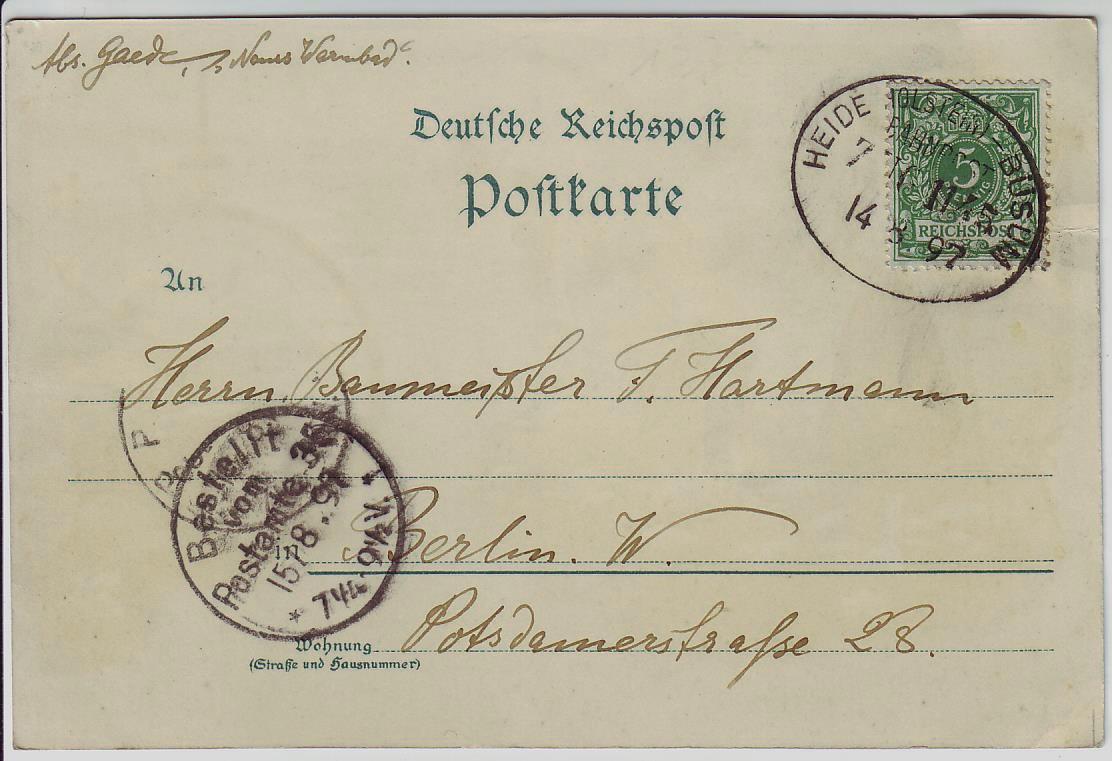 Abs. Gaede, Neues Warmbad.
Deutsche Reichspost
Postkarte
HEIDE HOLSTEIN - BÜSUM
BAHNPOST
5
14 8 97
REICHSPOST
An
Herrn Baumeister F. Hartmann
Bestellt
vom
Postamte 35
15/8.97
* 7¼-9½V. *
in Berlin. W
Wohnung Potsdamerstraße 28.
(Straße und Hausnummer)